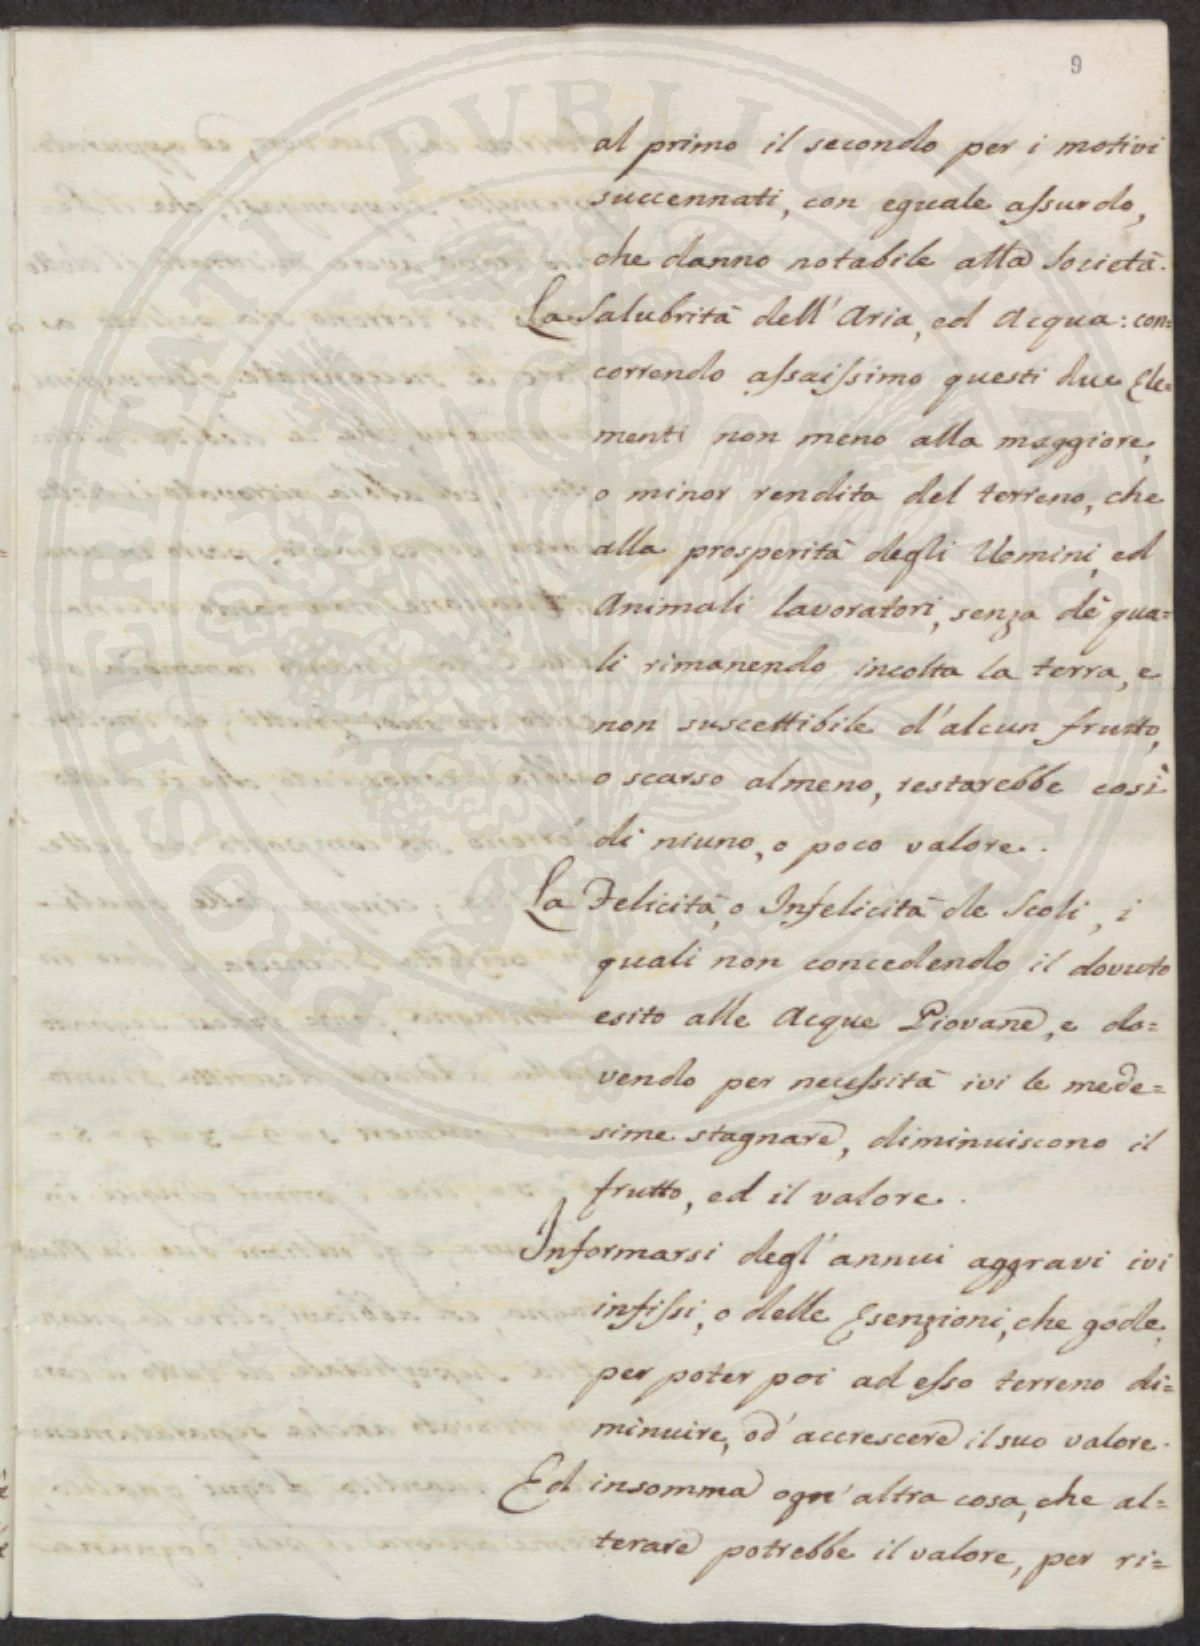 9
al primo il secondo per i motivi
succennati, con eguale assurdo,
che danno notabile alla Società.
La Salubrità dell'Aria, ed Acqua: con=
correndo assaissimo questi due Ele=
menti non meno alla maggiore,
o minor rendita del terreno, che
alla prosperità degli Uomini, ed
Animali lavoratori, senza de' qua=
li rimanendo incolta la terra, e
non suscettibile d'alcun frutto,
o scarso almeno, restarebbe così
di niuno, o poco valore.
La Felicità, o Infelicità de Scoli, i
quali non concedendo il dovuto
esito alle Acque Piovane, e do=
vendo per necessità ivi le mede=
sime stagnare, diminuiscono il
frutto, ed il valore.
Informarsi degl'annui aggravi ivi
infissi, o delle Esenzioni, che gode,
per poter poi ad esso terreno di=
minuire, od' accrescere il suo valore.
Ed insomma ogn'altra cosa, che al=
terare potrebbe il valore, per ri=
PROSPERITATI PUBLICAE AUGENDAE